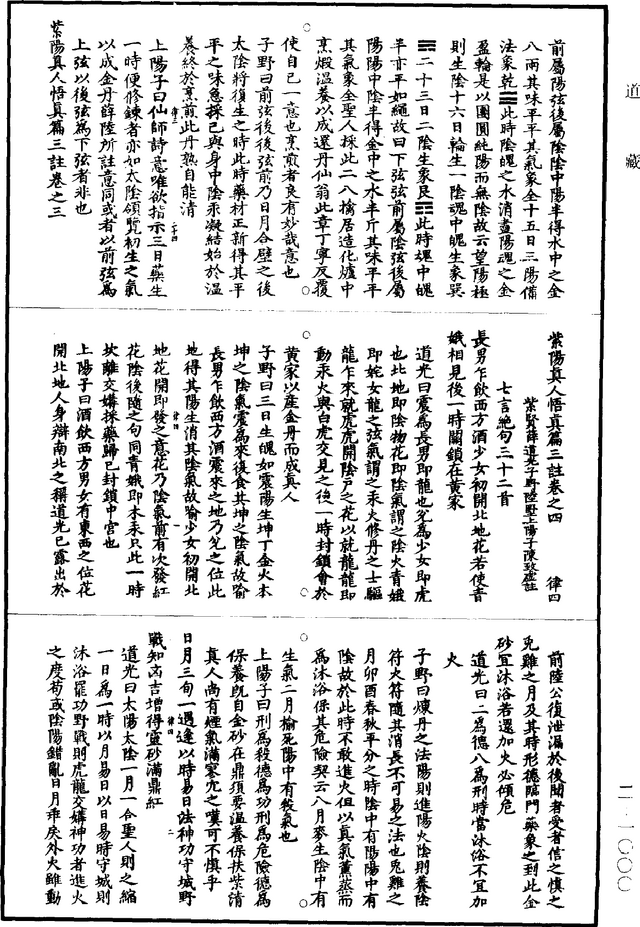 道藏
前屬陽弦後屬陰陰中陽半得水中之金
八兩其味平平其氣象全十五日三陽備
法象乾☰此時陰魄之水消盡陽魂之金
盈輪是以團圓純陽而無陰故云望陽極
則生陰十六日輪生一陰魂中魄生象巽
☴二十三日二陰生象艮☶此時魂中魄
半亦平如繩故曰下弦弦前屬陰弦後屬
陽陽中陰半得金中之水半斤其味平平
其氣象全聖人採此二八擒居造化爐中
烹煅溫養以成還丹仙翁此章丁寧反覆
使自己一意也烹煎者良有妙哉意也
子野曰前弦後後弦前乃日月合璧之後
太陰將復生之時此時藥材正新得其平
平之味急採已與身中陰汞凝結始於溫
養終於烹煎此丹熟自能清
上陽子曰仙師詩意唯欲指示三日藥生
一時便修鍊者亦如太陰領覽初生之氣
以成金丹薛陸所註意同或者以前弦為
上弦以後弦為下弦者非也
紫陽真人悟真篇三註卷之三
紫陽真人悟真篇三註卷之四
律四
紫賢薛道光子野陸墅上陽子陳致虛註
七言絕句三十二首
長男乍飲西方酒少女初開北地花若使青
娥相見後一時關鎖在黃家
道光曰震為長男即龍也兌為少女即虎
也北地即陰物花即陰氣謂之陰火青娥
即姹女龍之弦氣謂之汞火修丹之士驅
龍乍來就虎虎開陰戶之花以就龍龍即
動汞火與白虎交見之後一時封鎖會於
黃家以產金丹而成真人
子野曰三日生魄如震陽生坤丁金火本
坤之陰氣震為來復食其坤之陰氣故喻
長男乍飲西方酒震來之地乃兌之位此
地得其陽生消其陰氣故喻少女初開北
地花開即發之意花乃陰氣前有次發紅
花陰後隨之句同青娥即木汞只此一時
坎離交媾採藥歸已封鎖中宮也
上陽子曰酒飲西方男女有東西之位花
開北地人身辯南北之稱道光已露出於
前陸公復泄漏於後聞者愛者信之慎之
兔雞之月及其時形德臨門藥象之到此金
砂宜沐浴若還加火必傾危
道光曰二為德八為刑時當沐浴不宜加
火
子野曰煉丹之法陽則進陽火陰則養陰
符火符隨其消長不可易之法也兎雞之
月卯酉春秋平分之時陰中有陽陽中有
陰故於此時不敢進火但以真氣薰蒸而
為沐浴保其危險契云八月麥生陰中有
生氣二月榆死陽中有殺氣也
上陽子曰刑為殺德為功刑為危險德為
保養旣自金砂在鼎須要溫養保扶紫清
真人尚有煙氣滿寒穴之嘆可不慎乎
日月三旬一遇逢以時易日法神功守城野
戰知凶吉增得靈砂滿鼎紅
道光曰太陽太陰一月一合聖人則之縮
一日為一時以月易日以日易時守城則
沐浴罷功野戰則虎龍交媾神功者進火
之度苟或陰陽錯亂日月乖戾外火雖動